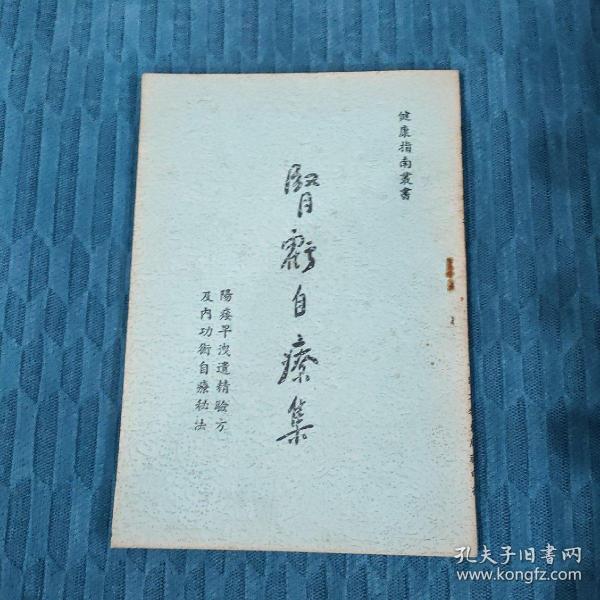 健康指南叢書
腎虧自療集
陽痿早洩遺精驗方
及內功術自療秘法
孔夫子旧书网
www.kongfz.com